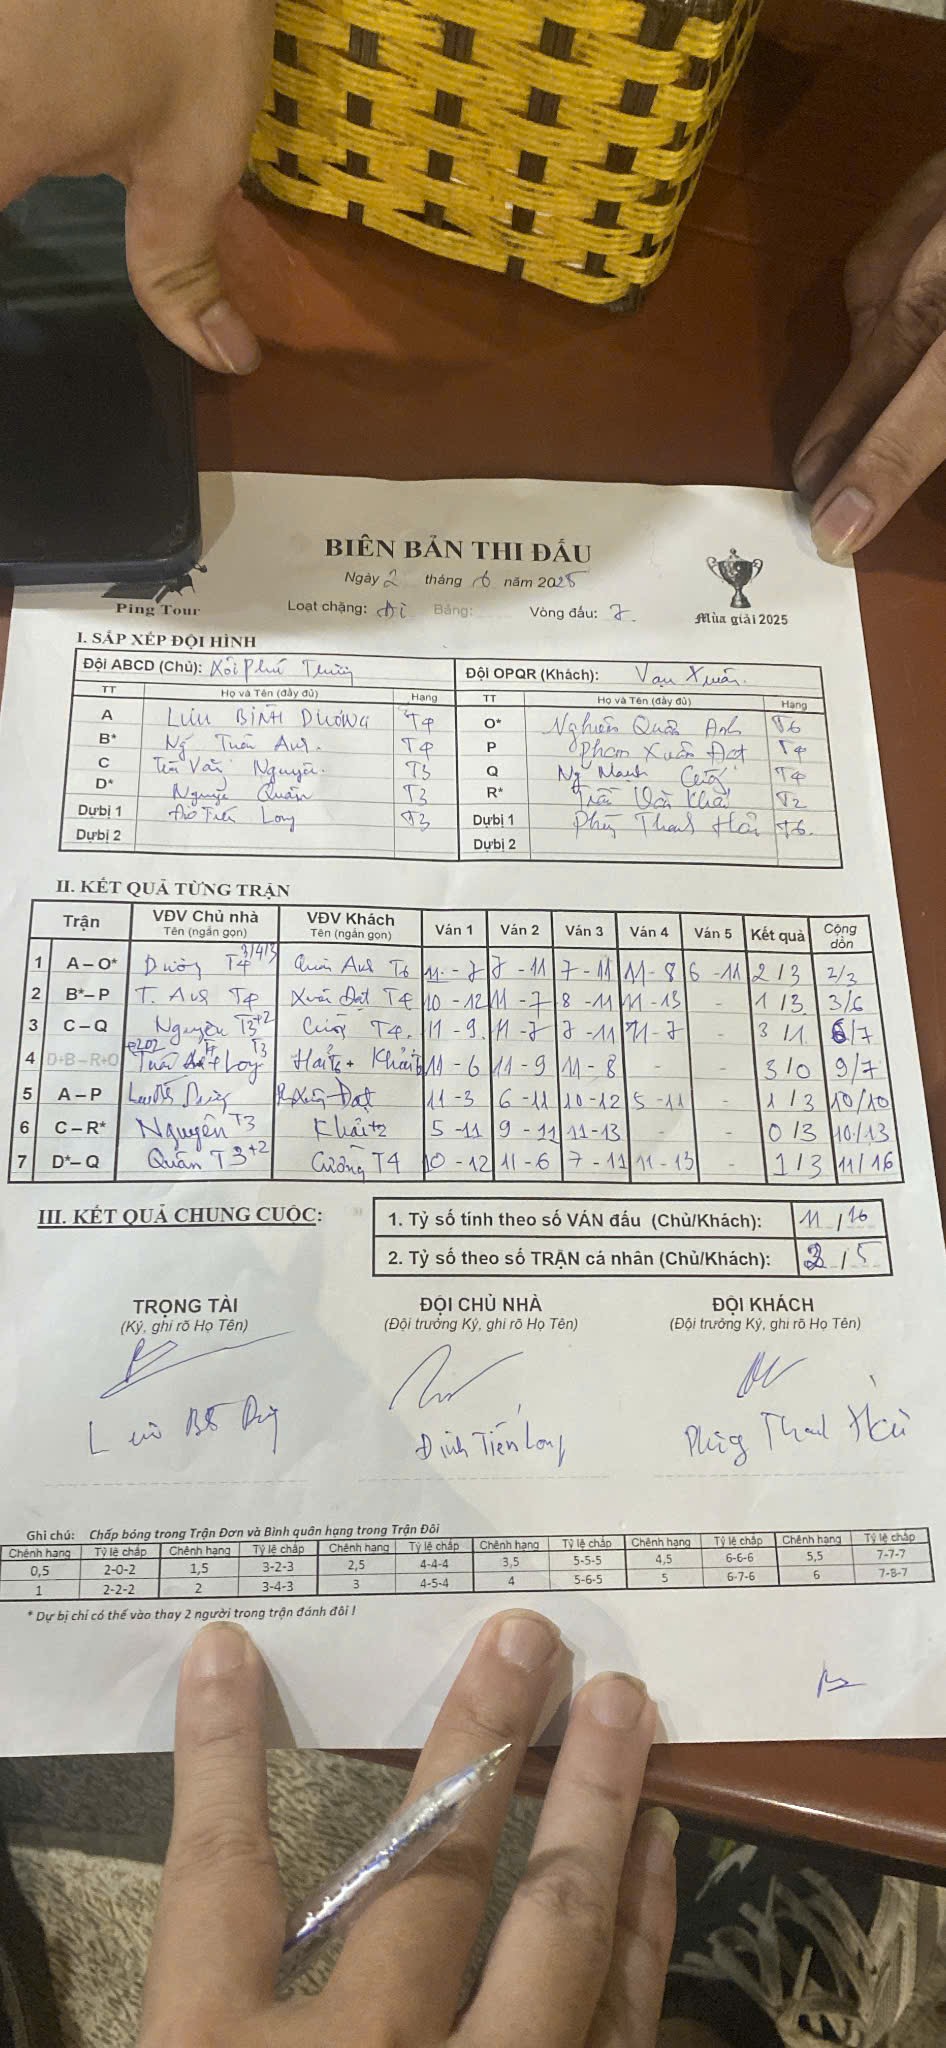 BIÊN BẢN THI ĐẤU
Ngày 2 tháng 6 năm 2025
Ping Tour
Loạt chặng: đi Bảng: Vòng đấu: 7
Mùa giải 2025
I. SẮP XẾP ĐỘI HÌNH
Đội ABCD (Chủ): Xôi Phú Thượng Đội OPQR (Khách): Vạn Xuân
TT Họ và Tên (đầy đủ) Hạng TT Họ và Tên (đầy đủ) Hạng
A LƯU BÌNH DƯƠNG T4 O* Nghiêm Quân Anh T6
B* Ng Tuấn Anh T4 P Phạm Xuân Đạt T4
C Văn Nguyên T3 Q Ng Mạnh Cường T4
D* Quân T3 R* Trần Văn Khải T2
Dự bị 1 Long T3 Dự bị 1 Phùng Thanh Hải T6
Dự bị 2 Dự bị 2
II. KẾT QUẢ TỪNG TRẬN
Trận VĐV Chủ nhà Tên (ngắn gọn) VĐV Khách Tên (ngắn gọn) Ván 1 Ván 2 Ván 3 Ván 4 Ván 5 Kết quả Cộng dồn
1 A – O* Dương T4 3/4/3 Quân Anh T6 11 - 7 7 - 11 7 - 11 11 - 8 6 - 11 2 / 3 2/3
2 B* – P T. Anh T4 Xuân Đạt T4 10 - 12 11 - 7 8 - 11 11 - 13 - 1 / 3 3/6
3 C – Q Nguyên T3 +2 Cường T4 11 - 9 11 - 7 7 - 11 11 - 7 - 3 / 1 6/7
4 D+B – R+O +202 Tuấn + Long T3 Hải T6 + Khải 11 - 6 11 - 9 11 - 8 - - 3 / 0 9/7
5 A – P Dương Xuân Đạt 11 - 3 6 - 11 10 - 12 5 - 11 - 1 / 3 10/10
6 C – R* Nguyên T3 Khải+2 5 - 11 9 - 11 11 - 13 - - 0 / 3 10/13
7 D* – Q Quân T3 +2 Cường T4 10 - 12 11 - 6 7 - 11 11 - 13 - 1 / 3 11/16
III. KẾT QUẢ CHUNG CUỘC:
1. Tỷ số tính theo số VÁN đấu (Chủ/Khách): 11 / 16
2. Tỷ số theo số TRẬN cá nhân (Chủ/Khách): 2 / 5
TRỌNG TÀI ĐỘI CHỦ NHÀ ĐỘI KHÁCH
(Ký, ghi rõ Họ Tên) (Đội trưởng Ký, ghi rõ Họ Tên) (Đội trưởng Ký, ghi rõ Họ Tên)
Đinh Tiến Long Phùng Thanh Hải
Ghi chú: Chấp bóng trong Trận Đơn và Bình quân hạng trong Trận Đôi
Chênh hạng Tỷ lệ chấp Chênh hạng Tỷ lệ chấp Chênh hạng Tỷ lệ chấp Chênh hạng Tỷ lệ chấp Chênh hạng Tỷ lệ chấp Chênh hạng Tỷ lệ chấp
0,5 2-0-2 1,5 3-2-3 2,5 4-4-4 3,5 5-5-5 4,5 6-6-6 5,5 7-7-7
1 2-2-2 2 3-4-3 3 4-5-4 4 5-6-5 5 6-7-6 6 7-8-7
* Dự bị chỉ có thể vào thay 2 người trong trận đánh đôi !